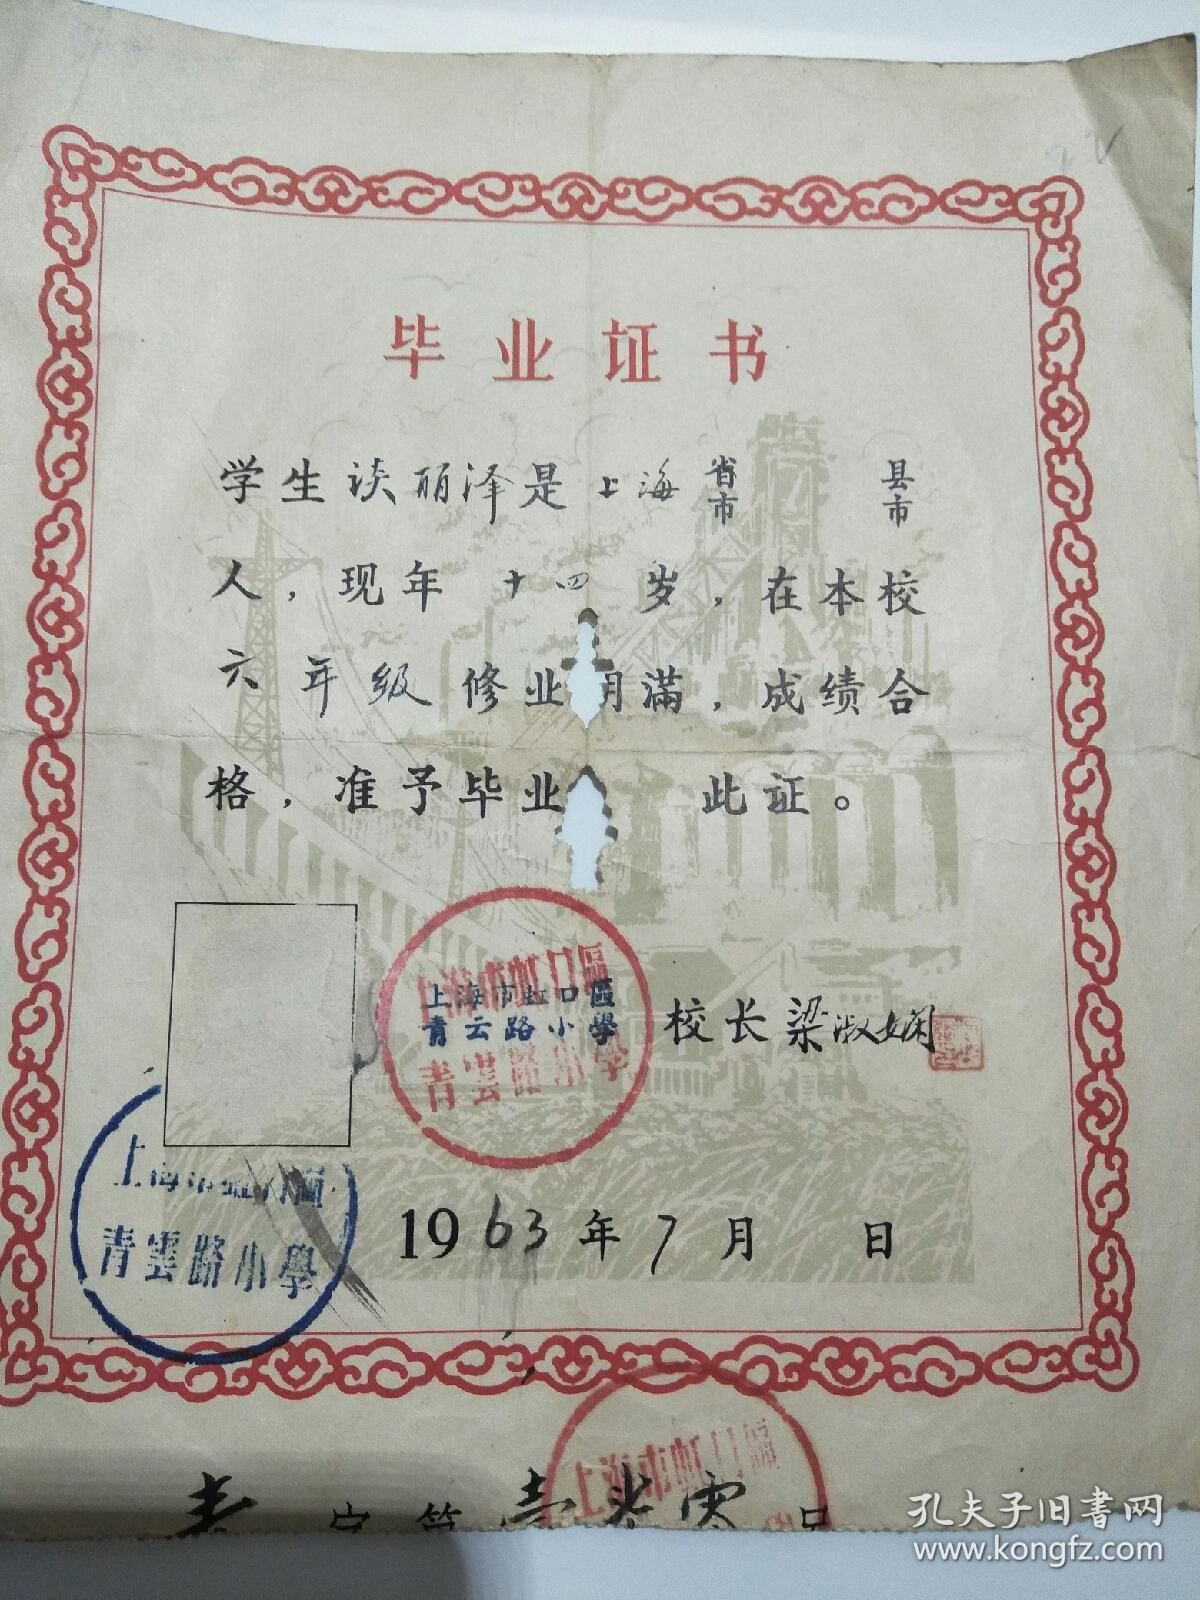 毕业证书
学生谈丽泽是上海省市 县市
人，现年十四岁，在本校
六年级修业期满，成绩合
格，准予毕业 此证。
上海市虹口區
上海市虹口區
青云路小學
青雲路小學
校长梁淑娴
上海市虹口區
青雲路小學
1963年7月 日
上海市虹口區
字第 号
孔夫子旧书网
www.kongfz.com